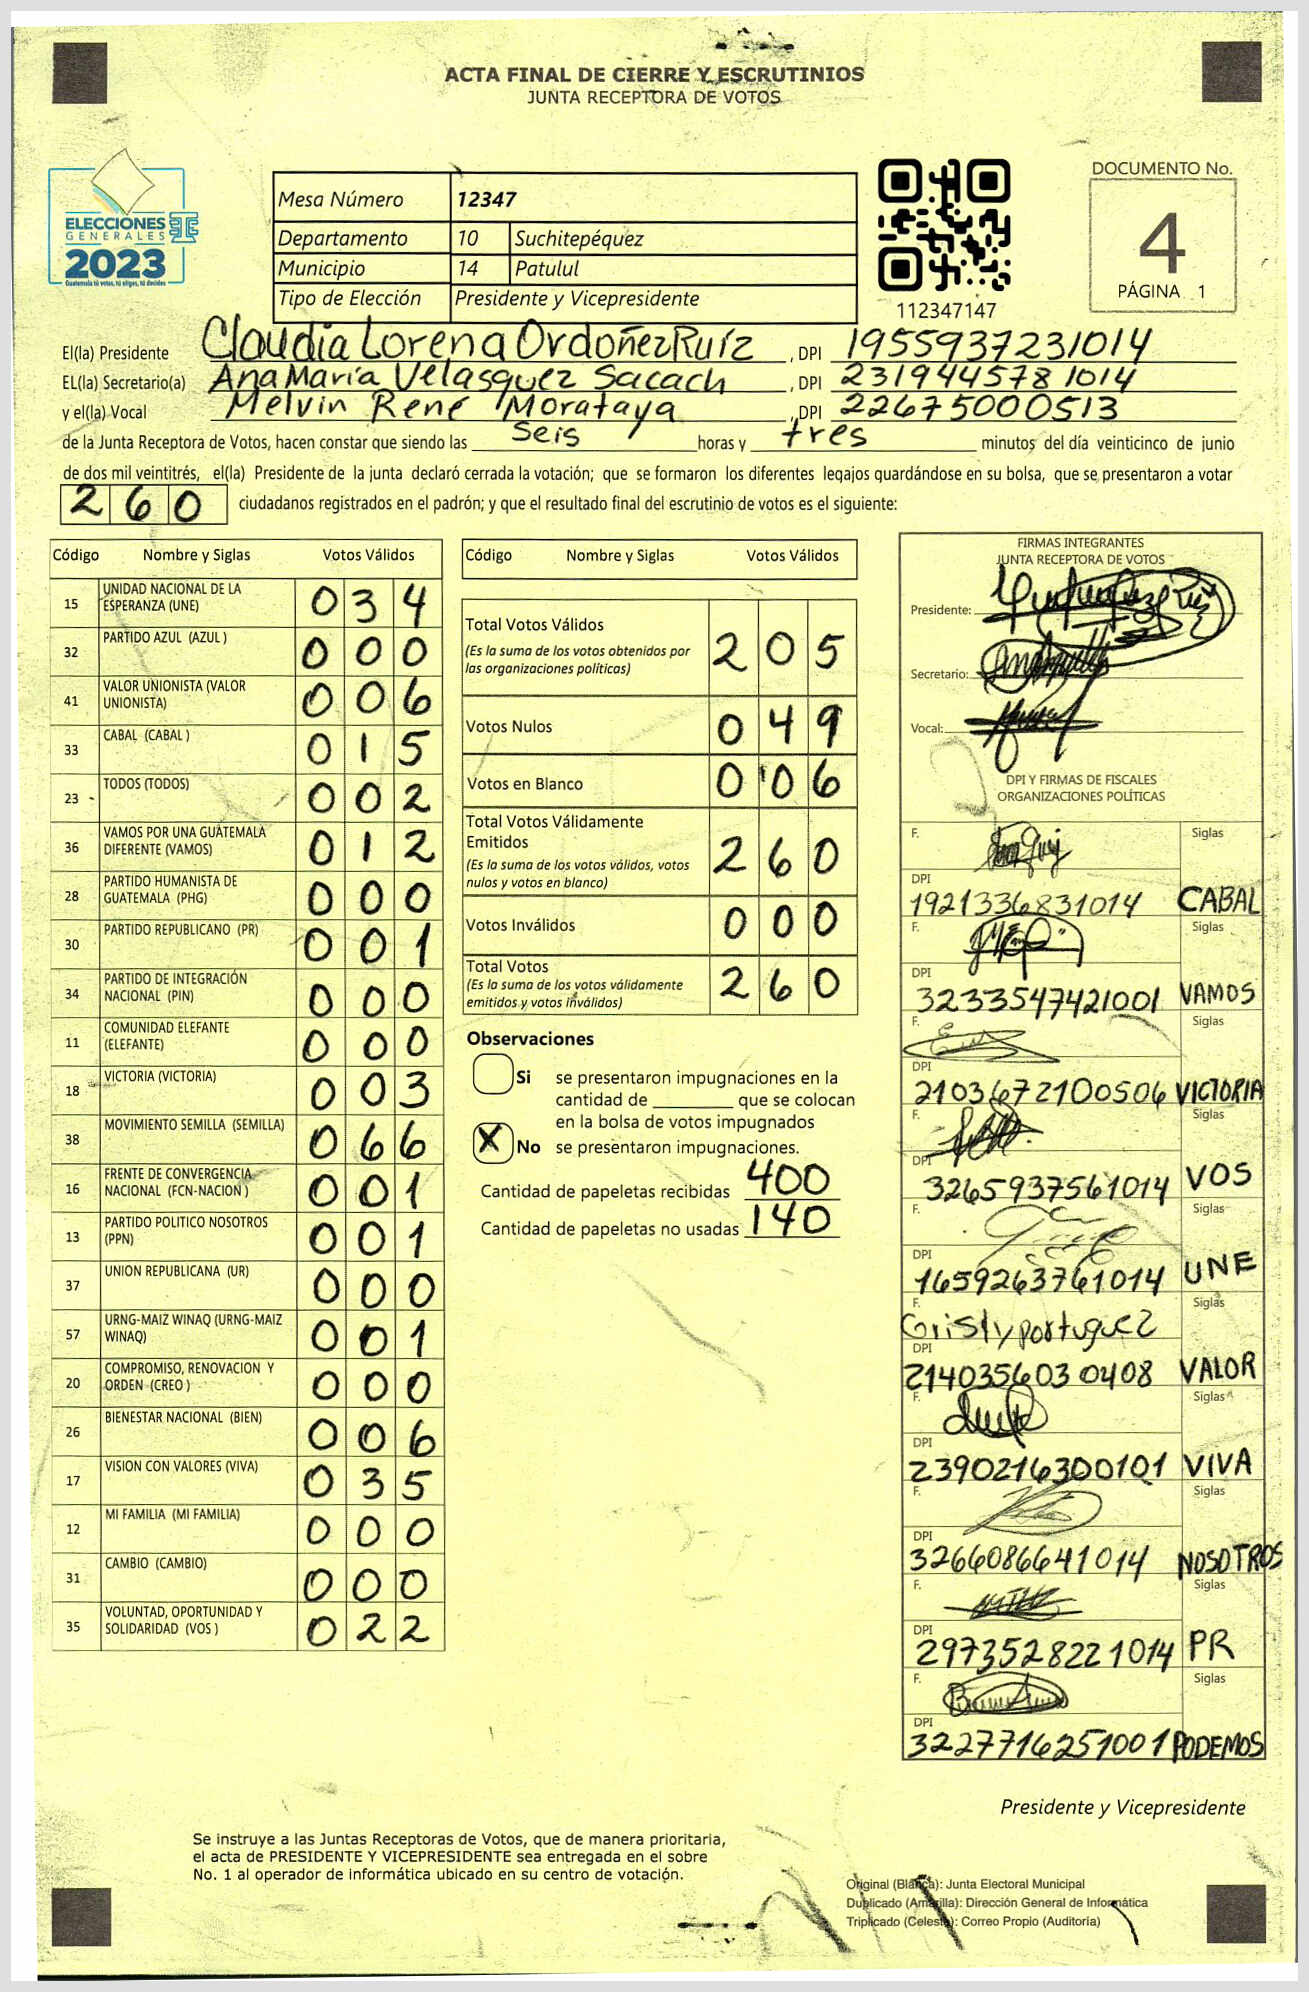 ACTA FINAL DE CIERRE Y ESCRUTINIOS
JUNTA RECEPTORA DE VOTOS
ELECCIONES
GENERALES
2023
Guatemala tú votas, tú eliges, tú decides
Mesa Número 12347
Departamento 10 Suchitepéquez
Municipio 14 Patulul
Tipo de Elección Presidente y Vicepresidente
112347147
DOCUMENTO No.
4
PÁGINA 1
El(la) Presidente Claudia Lorena Ordoñez Ruíz , DPI 1955937231014
EL(la) Secretario(a) Ana María Velasquez Sacach , DPI 2319445781014
y el(la) Vocal Melvin René Morataya , DPI 2267500 0513
de la Junta Receptora de Votos, hacen constar que siendo las seis horas y tres minutos del día veinticinco de junio
de dos mil veintitrés, el(la) Presidente de la junta declaró cerrada la votación; que se formaron los diferentes legajos guardándose en su bolsa, que se presentaron a votar
260 ciudadanos registrados en el padrón; y que el resultado final del escrutinio de votos es el siguiente:
Código Nombre y Siglas Votos Válidos
15 UNIDAD NACIONAL DE LA ESPERANZA (UNE) 034
32 PARTIDO AZUL (AZUL ) 000
41 VALOR UNIONISTA (VALOR UNIONISTA) 006
33 CABAL (CABAL ) 015
23 TODOS (TODOS) 002
36 VAMOS POR UNA GUATEMALA DIFERENTE (VAMOS) 012
28 PARTIDO HUMANISTA DE GUATEMALA (PHG) 000
30 PARTIDO REPUBLICANO (PR) 001
34 PARTIDO DE INTEGRACIÓN NACIONAL (PIN) 000
11 COMUNIDAD ELEFANTE (ELEFANTE) 000
18 VICTORIA (VICTORIA) 003
38 MOVIMIENTO SEMILLA (SEMILLA) 066
16 FRENTE DE CONVERGENCIA NACIONAL (FCN-NACION ) 001
13 PARTIDO POLITICO NOSOTROS (PPN) 001
37 UNION REPUBLICANA (UR) 000
57 URNG-MAIZ WINAQ (URNG-MAIZ WINAQ) 001
20 COMPROMISO, RENOVACION Y ORDEN (CREO ) 000
26 BIENESTAR NACIONAL (BIEN) 006
17 VISION CON VALORES (VIVA) 035
12 MI FAMILIA (MI FAMILIA) 000
31 CAMBIO (CAMBIO) 000
35 VOLUNTAD, OPORTUNIDAD Y SOLIDARIDAD (VOS ) 022
Código Nombre y Siglas Votos Válidos
Total Votos Válidos 205
(Es la suma de los votos obtenidos por
las organizaciones políticas)
Votos Nulos 049
Votos en Blanco 006
Total Votos Válidamente
Emitidos 260
(Es la suma de los votos válidos, votos
nulos y votos en blanco)
Votos Inválidos 000
Total Votos 260
(Es la suma de los votos válidamente
emitidos y votos inválidos)
Observaciones
Si se presentaron impugnaciones en la
cantidad de ________ que se colocan
en la bolsa de votos impugnados
X No se presentaron impugnaciones.
Cantidad de papeletas recibidas 400
Cantidad de papeletas no usadas 140
FIRMAS INTEGRANTES
JUNTA RECEPTORA DE VOTOS
Presidente:
Secretario:
Vocal:
DPI Y FIRMAS DE FISCALES
ORGANIZACIONES POLÍTICAS
F. Siglas
DPI
1921336831014 CABAL
F. Siglas
DPI
3233547421001 VAMOS
F. Siglas
DPI
2103672100506 VICTORIA
F. Siglas
DPI
3265937561014 VOS
F. Siglas
DPI
1659263761014 UNE
F. Cristy portuguez Siglas
DPI
2140356030408 VALOR
F. Siglas
DPI
2390216300101 VIVA
F. Siglas
DPI
3266086641014 NOSOTROS
F. Siglas
DPI
2973528221014 PR
F. Siglas
DPI
3227716251001 PODEMOS
Presidente y Vicepresidente
Se instruye a las Juntas Receptoras de Votos, que de manera prioritaria,
el acta de PRESIDENTE Y VICEPRESIDENTE sea entregada en el sobre
No. 1 al operador de informática ubicado en su centro de votación.
Original (Blanca): Junta Electoral Municipal
Duplicado (Amarilla): Dirección General de Informática
Triplicado (Celeste): Correo Propio (Auditoría)